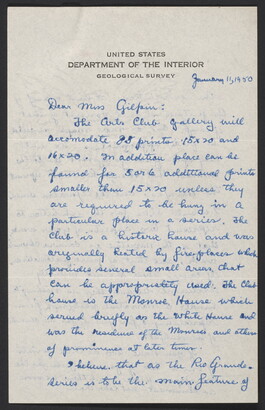 UNITED STATES
DEPARTMENT OF THE INTERIOR
GEOLOGICAL SURVEY
January 11, 1950
Dear Miss Gilpin:
The Arts Club gallery will
accomodate 25 prints 15x20 and
16x20. In addition place can be
found for 5 or 6 additional prints
smaller than 15x20 unless they
are required to be hung in a
particular place in a series. The
Club is a historic house and was
originally heated by fireplaces which
provides several small areas that
can be appropriately used. The Club
house is the Monroe House which
served briefly as the White House and
was the residence of the Monroes and others
of prominence at later times.
I believe that as the Rio Grande
series is to be the main feature of